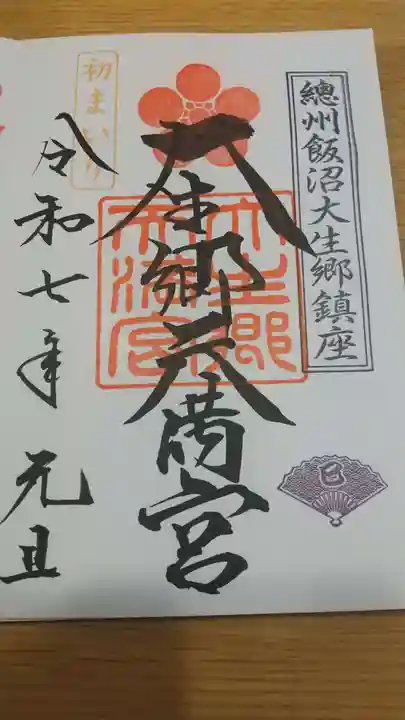 總州飯沼大生郷鎮座
巳
大生郷天満宮
大生郷天満宮
初まいり
令和七年元旦